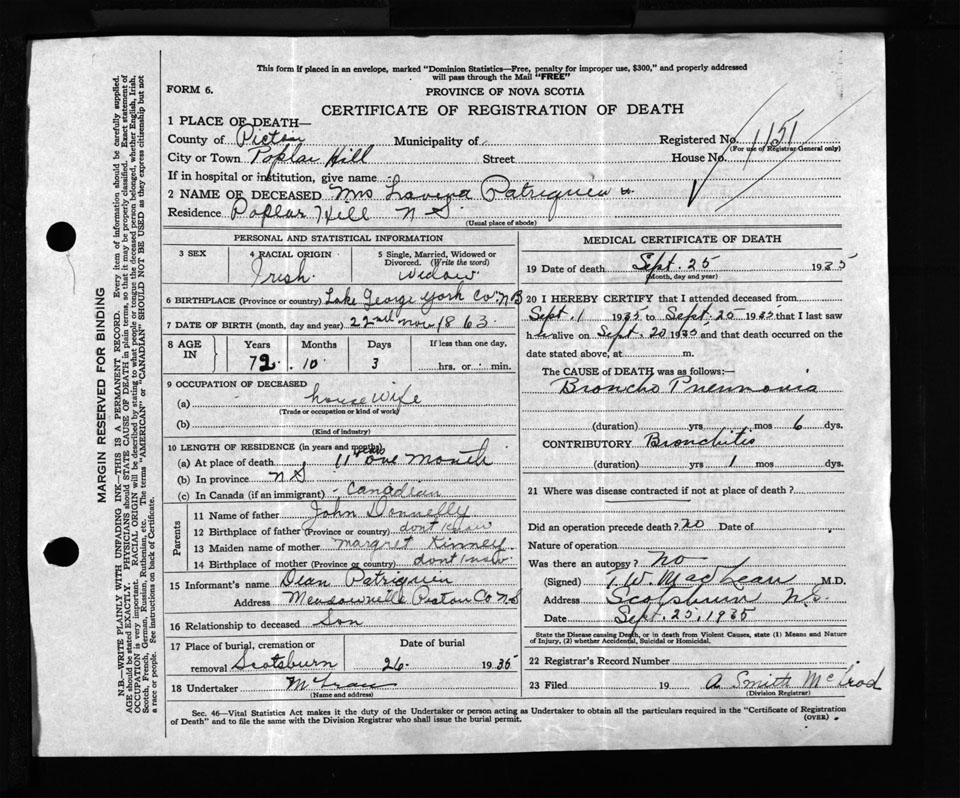 This form if placed in an envelope, marked "Dominion Statistics—Free, penalty for improper use, $300," and properly addressed
will pass through the Mail "FREE"
FORM 6.
PROVINCE OF NOVA SCOTIA
CERTIFICATE OF REGISTRATION OF DEATH
1 PLACE OF DEATH—
County of Pictou Municipality of Registered No. 1151
(For use of Registrar General only)
City or Town Poplar Hill Street House No.
If in hospital or institution, give name
2 NAME OF DECEASED Mrs Patriquin
Residence Poplar Hill N S.
(Usual place of abode)
PERSONAL AND STATISTICAL INFORMATION
3 SEX
4 RACIAL ORIGIN
Irish
5 Single, Married, Widowed or
Divorced. (Write the word)
Widow
6 BIRTHPLACE (Province or country) Lake George York Co N B
7 DATE OF BIRTH (month, day and year) 22nd Nov 1863
8 AGE IN
Years Months Days If less than one day,
72 10 3 hrs. or min.
9 OCCUPATION OF DECEASED
(a) house wife
(Trade or occupation or kind of work)
(b)
(Kind of industry)
10 LENGTH OF RESIDENCE (in years and months)
(a) At place of death 11 years one month
(b) In province N S
(c) In Canada (if an immigrant) - Canadian
Parents
11 Name of father John Donnelly
12 Birthplace of father (Province or country) dont know
13 Maiden name of mother Margret Kinney
14 Birthplace of mother (Province or country) dont know
15 Informant's name Dean Patriquin
Address Meadowville Pictou Co N S
16 Relationship to deceased Son
17 Place of burial, cremation or Date of burial
removal Scotsburn 26 1935
18 Undertaker McLean
(Name and address)
MEDICAL CERTIFICATE OF DEATH
19 Date of death Sept. 25 1935
(Month, day and year)
20 I HEREBY CERTIFY that I attended deceased from
Sept. 1 1935 to Sept. 25 1935 that I last saw
h alive on Sept. 20 1935 and that death occurred on the
date stated above, at m.
The CAUSE of DEATH was as follows:
Broncho Pneumonia
(duration) yrs mos 6 dys.
CONTRIBUTORY Bronchitis
(duration) yrs 1 mos dys.
21 Where was disease contracted if not at place of death?
Did an operation precede death? no Date of
Nature of operation
Was there an autopsy? no
(Signed) T. W. MacLean M.D.
Address Scotsburn N.S.
Date Sept. 25, 1935
State the Disease causing Death, or in death from Violent Causes, state (1) Means and Nature
of Injury, (2) whether Accidental, Suicidal or Homicidal.
22 Registrar's Record Number
23 Filed 19 A Smith McLeod
(Division Registrar)
Sec. 46—Vital Statistics Act makes it the duty of the Undertaker or person acting as Undertaker to obtain all the particulars required in the "Certificate of Registration
of Death" and to file the same with the Division Registrar who shall issue the burial permit.
(OVER)
MARGIN RESERVED FOR BINDING
N.B.—WRITE PLAINLY WITH UNFADING INK—THIS IS A PERMANENT RECORD. Every item of information should be carefully supplied.
AGE should be stated EXACTLY. PHYSICIANS should STATE CAUSE OF DEATH in plain terms, so that it may be properly classified. Exact statement of
OCCUPATION is very important. RACIAL ORIGIN will be described by stating to what people or tongue the deceased person belonged, whether English, Irish,
Scotch, French, German, Russian, Ruthenian, etc. The terms "AMERICAN" or "CANADIAN" SHOULD NOT BE USED as they express citizenship but not
a race or people. See instructions on back of Certificate.